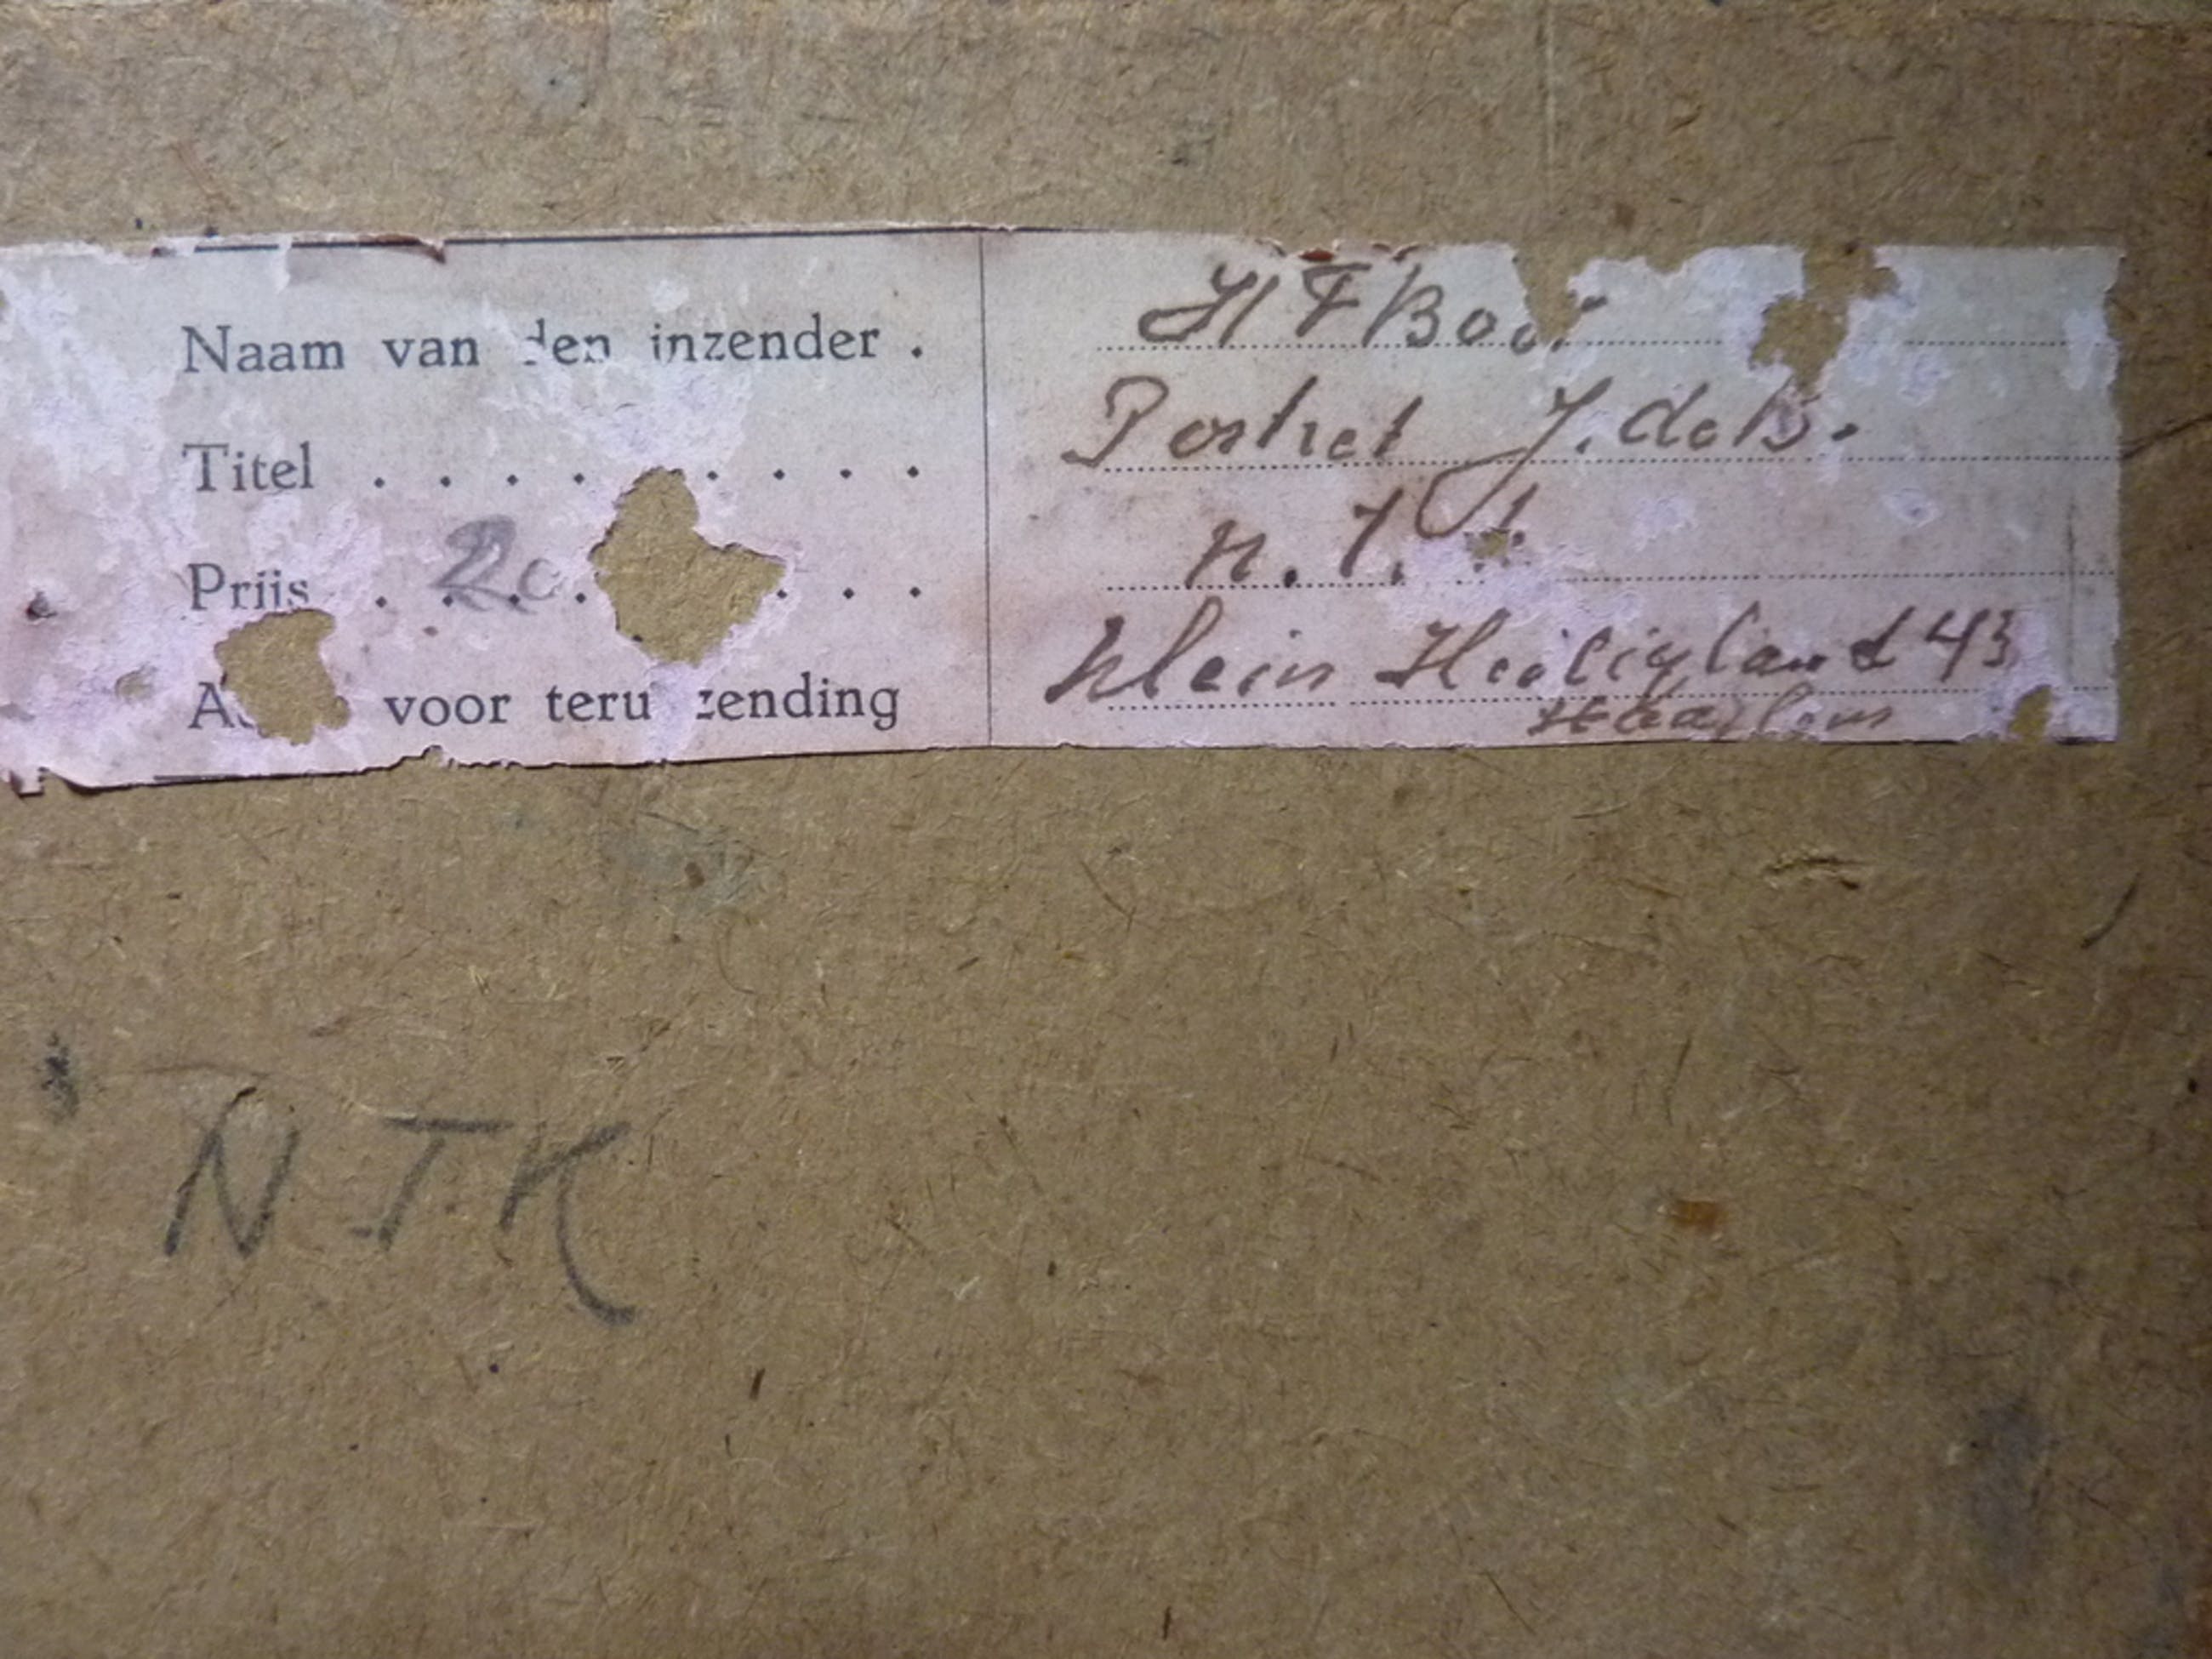 Naam van den inzender . H F Boo
Titel . . . . . . . . . Portret J. de B.
Prijs . 20 . . . . n.
voor terugzending Klein Heiligland 43
Haarlem
N.T.K